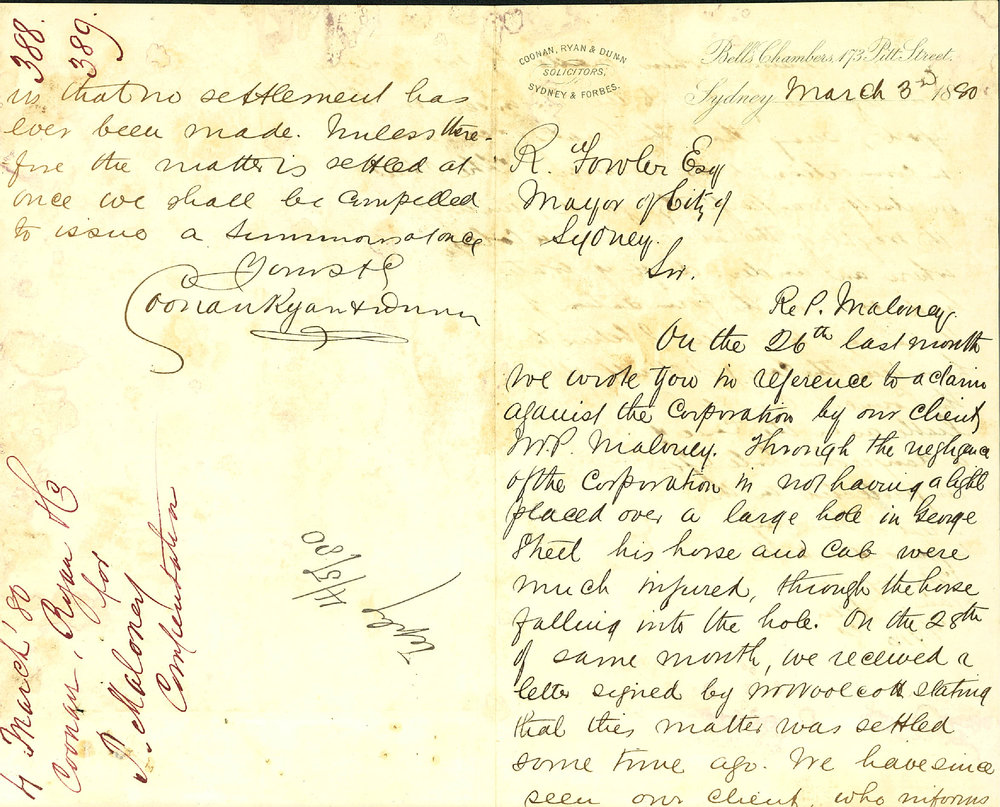 COONAN, RYAN & DUNN
SOLICITORS,
SYDNEY & FORBES.
Bell's Chambers, 173 Pitt Street.
Sydney March 3rd 1880
R. Fowler Esq
Mayor of City of
Sydney.
Sir.
Re P. Maloney
On the 26th last month
we wrote you in reference to a claim
against the Corporation by our client
Mr P. Maloney. Through the negligence
of the Corporation in not having a light
placed over a large hole in George
Street his horse and cab were
much injured, through the horse
falling into the hole. On the 28th
of same month, we received a
letter signed by Mr Woolcott stating
that this matter was settled
some time ago. We have since
seen our client, who informs
us that no settlement has
ever been made. Unless there-
fore the matter is settled at
once we shall be compelled
to issue a summons at once
Yours &c
Coonan Ryan & Dunn
388.
389.
4 March '80
Coonan, Ryan &c
for
P. Maloney
Compensation
4/3/80